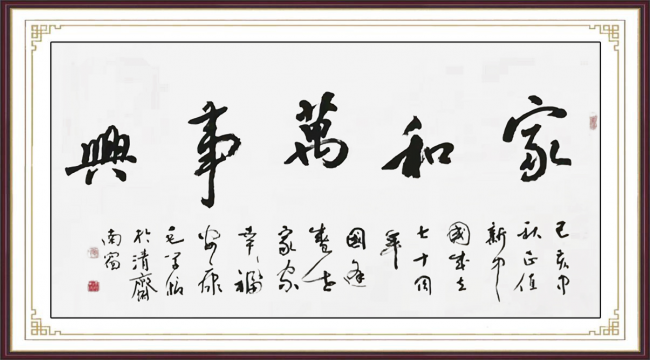 家和萬事興
己亥中
秋正值
新中
國成立
七十周
年
國逢
盛世
家家
幸福
安康
於清齋
南窗